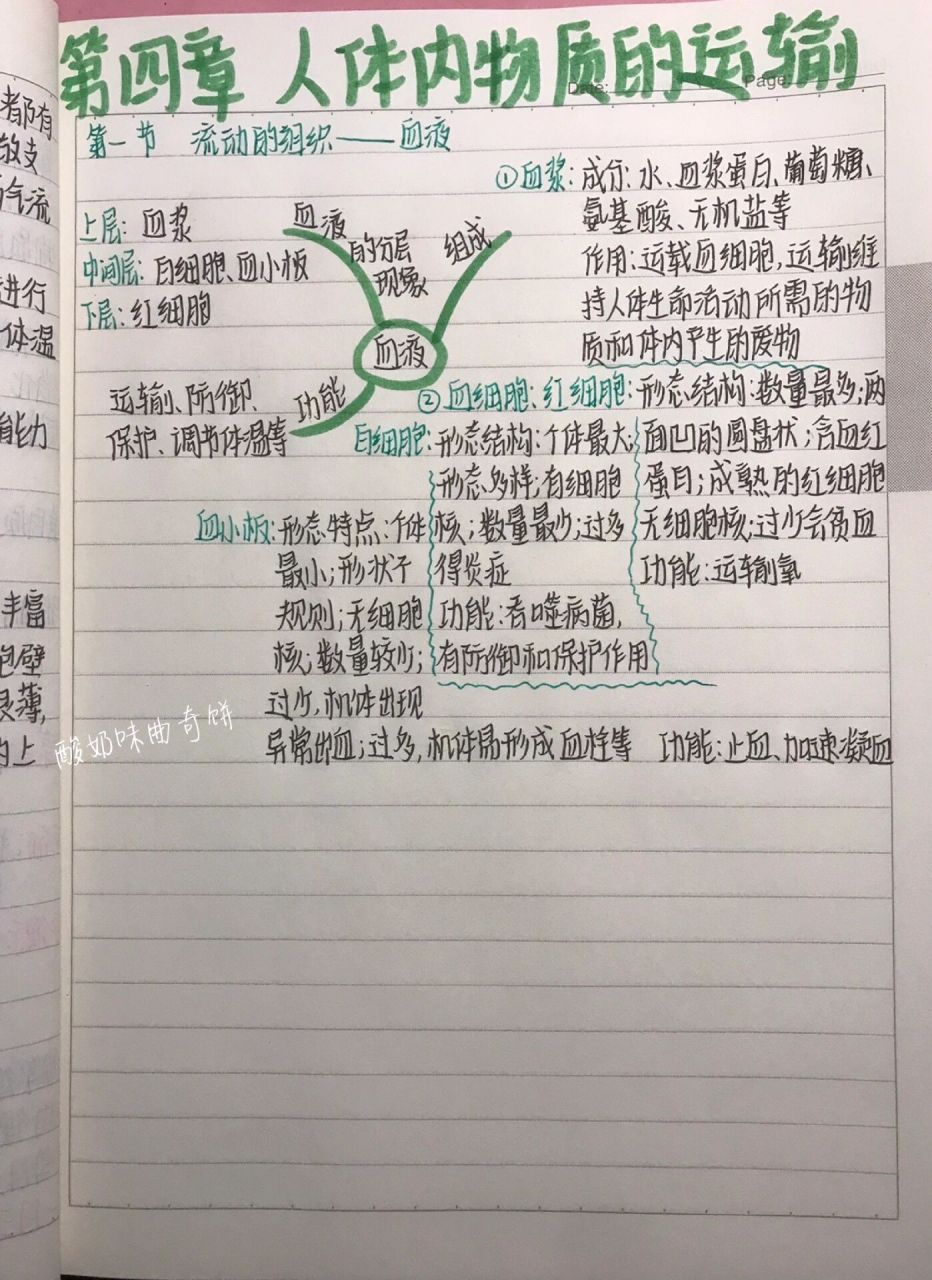 第四章 人体内物质的运输
Date:
Page:
第一节 流动的组织——血液
上层:血浆
中间层:白细胞、血小板
下层:红细胞
血液
的分层
现象
组成
血液
功能
运输、防御、
保护、调节体温等
①血浆:成分:水、血浆蛋白、葡萄糖、
氨基酸、无机盐等
作用:运载血细胞,运输维
持人体生命活动所需的物
质和体内产生的废物
②血细胞:红细胞:形态结构:数量最多;两
面凹的圆盘状;含血红
蛋白;成熟的红细胞
无细胞核;过少会贫血
功能:运输氧
白细胞:形态结构:个体最大;
形态多样;有细胞
核;数量最少;过多
得炎症
功能:吞噬病菌,
有防御和保护作用
血小板:形态特点:个体
最小;形状不
规则;无细胞
核;数量较少;
过少,机体出现
异常出血;过多,机体易形成血栓等 功能:止血、加速凝血
酸奶味曲奇饼
者都有
敌支
气流
进行
体温
能力
丰富
包壁
很薄,
上